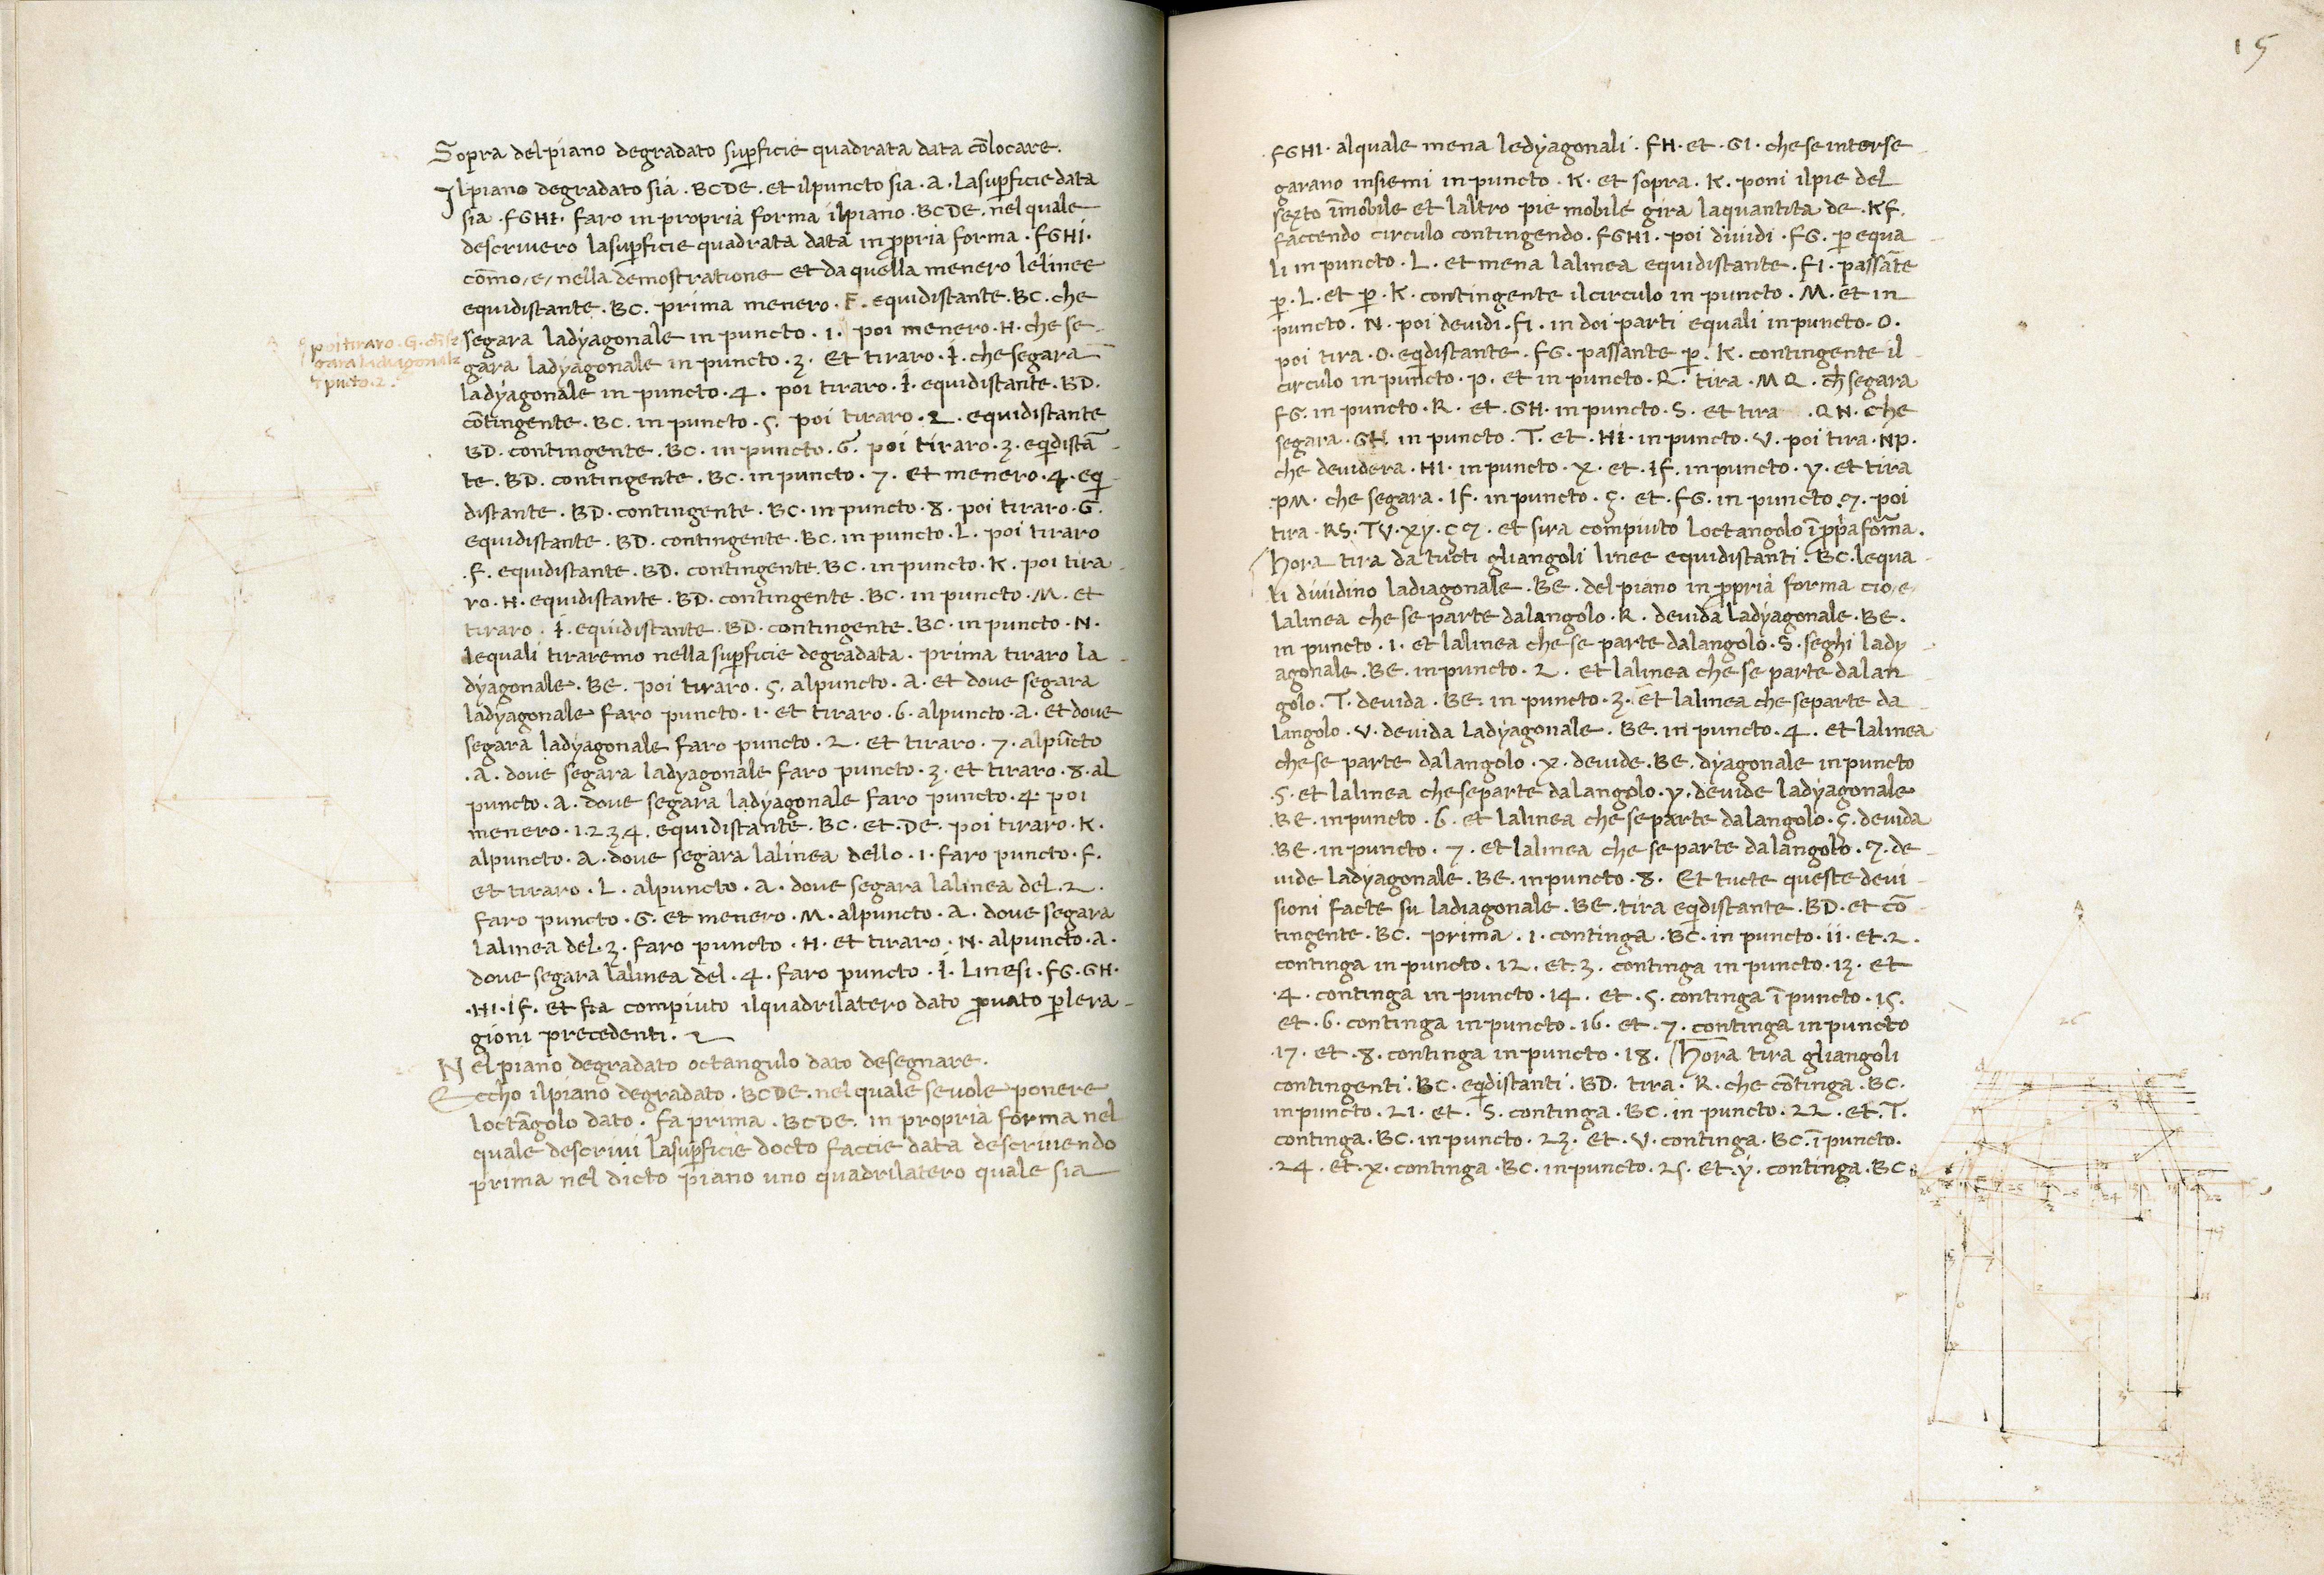 Sopra delpiano degradato supficie quadrata data cōlocare.
Ilpiano degradato sia .BCDE. et ilpuncto sia .A. lasupficie data
sia .FGHI. faro in propria forma ilpiano .BCDE. nel quale
descrivero lasupficie quadrata data in ppria forma .FGHI.
cōmo/e/ nella demostratione et da quella menero lelinee
equidistante .BC. prima menero .F. equidistante .BC. che
segara ladyagonale in puncto .1. poi menero .H. che se-
poi tiraro .G. che se
gara ladiagonale
ī pūcto .2.
gara ladyagonale in puncto .3. Et tiraro .I. che segara
ladyagonale in puncto .4. poi tiraro .I. equidistante .BD.
cōtingente .BC. in puncto .5. poi tiraro .2. equidistante
BD. contingente .BC. in puncto .6. poi tiraro .3. eqdistā-
te .BD. contingente .BC. in puncto .7. et menero .4. eq-
distante .BD. contingente .BC. in puncto .8. poi tiraro .G.
equidistante .BD. contingente .BC. in puncto .L. poi tiraro
.F. equidistante .BD. contingente .BC. in puncto .K. poi tira-
ro .H. equidistante .BD. contingente .BC. in puncto .M. et
tiraro .I. equidistante .BD. contingente .BC. in puncto .N.
lequali tiraremo nella supficie degradata. prima tiraro la
dyagonale .BE. poi tiraro .5. alpuncto .A. et dove segara
ladyagonale faro puncto .1. et tiraro .6. alpuncto .A. et dove
segara ladyagonale faro puncto .2. et tiraro .7. alpūcto
.A. dove segara ladyagonale faro puncto .3. et tiraro .8. al
puncto .A. dove segara ladyagonale faro puncto .4. poi
menero .1.2.3.4. equidistante .BC. et .DE. poi tiraro .K.
alpuncto .A. dove segara lalinea dello .1. faro puncto .F.
et tiraro .L. alpuncto .A. dove segara lalinea del .2.
faro puncto .G. et menero .M. alpuncto .A. dove segara
lalinea del .3. faro puncto .H. et tiraro .N. alpuncto .A.
dove segara lalinea del .4. faro puncto .I. linesi .FG.GH.
.HI.IF. et fia compiuto ilquadrilatero dato pvato plera-
gioni precedenti.
Nelpiano degradato octangulo dato desegnare.
Eccho ilpiano degradato .BCDE. nel quale sevole ponere
loctāgolo dato. fa prima .BCDE. in propria forma nel
quale descrivi lasupficie docto faccie data descrivendo
prima nel dicto piano uno quadrilatero quale sia
15
.FGHI. alquale mena ledyagonali .FH. et .GI. che se interse-
garano insiemi in puncto .K. et sopra .K. poni ilpie del
sexto īmobile et laltro pie mobile gira laquantita de .KF.
faccendo circulo contingendo .FGHI. poi dividi .FG. p equa-
li in puncto .L. et mena lalinea equidistante .FI. passāte
p .L. et p .K. contingente ilcirculo in puncto .M. et in
puncto .N. poi devidi .FI. in doi parti equali in puncto .O.
poi tira .O. eqdistante .FG. passante p .K. contingente il
circulo in puncto .P. et in puncto .Q. tira .MQ. ch segara
FG. in puncto .R. et .GH. in puncto .S. et tira .QN. che
segara .GH. in puncto .T. et .HI. in puncto .V. poi tira .NP.
che devidera .HI. in puncto .X. et .IF. in puncto .Y. et tira
.PM. che segara .IF. in puncto .ς. et .FG. in puncto .9. poi
tira .RS.TV.XY.ς9. et sira compiuto loctangolo ī ppia forma.
hora tira da tucti gliangoli linee equidistanti .BC. lequa-
li dividino ladiagonale .BE. del piano in ppria forma cio/e/
lalinea che se parte dalangolo .R. devida ladyagonale .BE.
in puncto .1. et lalinea che se parte dalangolo .S. seghi lady-
agonale .BE. in puncto .2. et lalinea che se parte dalan-
golo .T. devida .BE. in puncto .3. et lalinea che separte da-
langolo .V. devida ladyagonale .BE. in puncto .4. et lalinea
che se parte dalangolo .X. devide .BE. dyagonale in puncto
.5. et lalinea che separte dalangolo .Y. devide ladyagonale
.BE. in puncto .6. et lalinea che separte dalangolo .ς. devida
.BE. in puncto .7. et lalinea che se parte dalangolo .9. de-
vide ladyagonale .BE. in puncto .8. Et tucte queste devi-
sioni facte su ladiagonale .BE. tira eqdistante .BD. et cō-
tingente .BC. prima .1. continga .BC. in puncto .11. et .2.
continga in puncto .12. et .3. continga in puncto .13. et
.4. continga in puncto .14. et .5. continga ī puncto .15.
et .6. continga in puncto .16. et .7. continga in puncto
.17. et .8. continga in puncto .18. hora tira gliangoli
contingenti .BC. eqdistanti .BD. tira .R. che cōtinga .BC.
in puncto .21. et .S. continga .BC. in puncto .22. et .T.
continga .BC. in puncto .23. et .V. continga .BC. ī puncto.
.24. et .X. continga .BC. in puncto .25. et .Y. continga .BC.
A